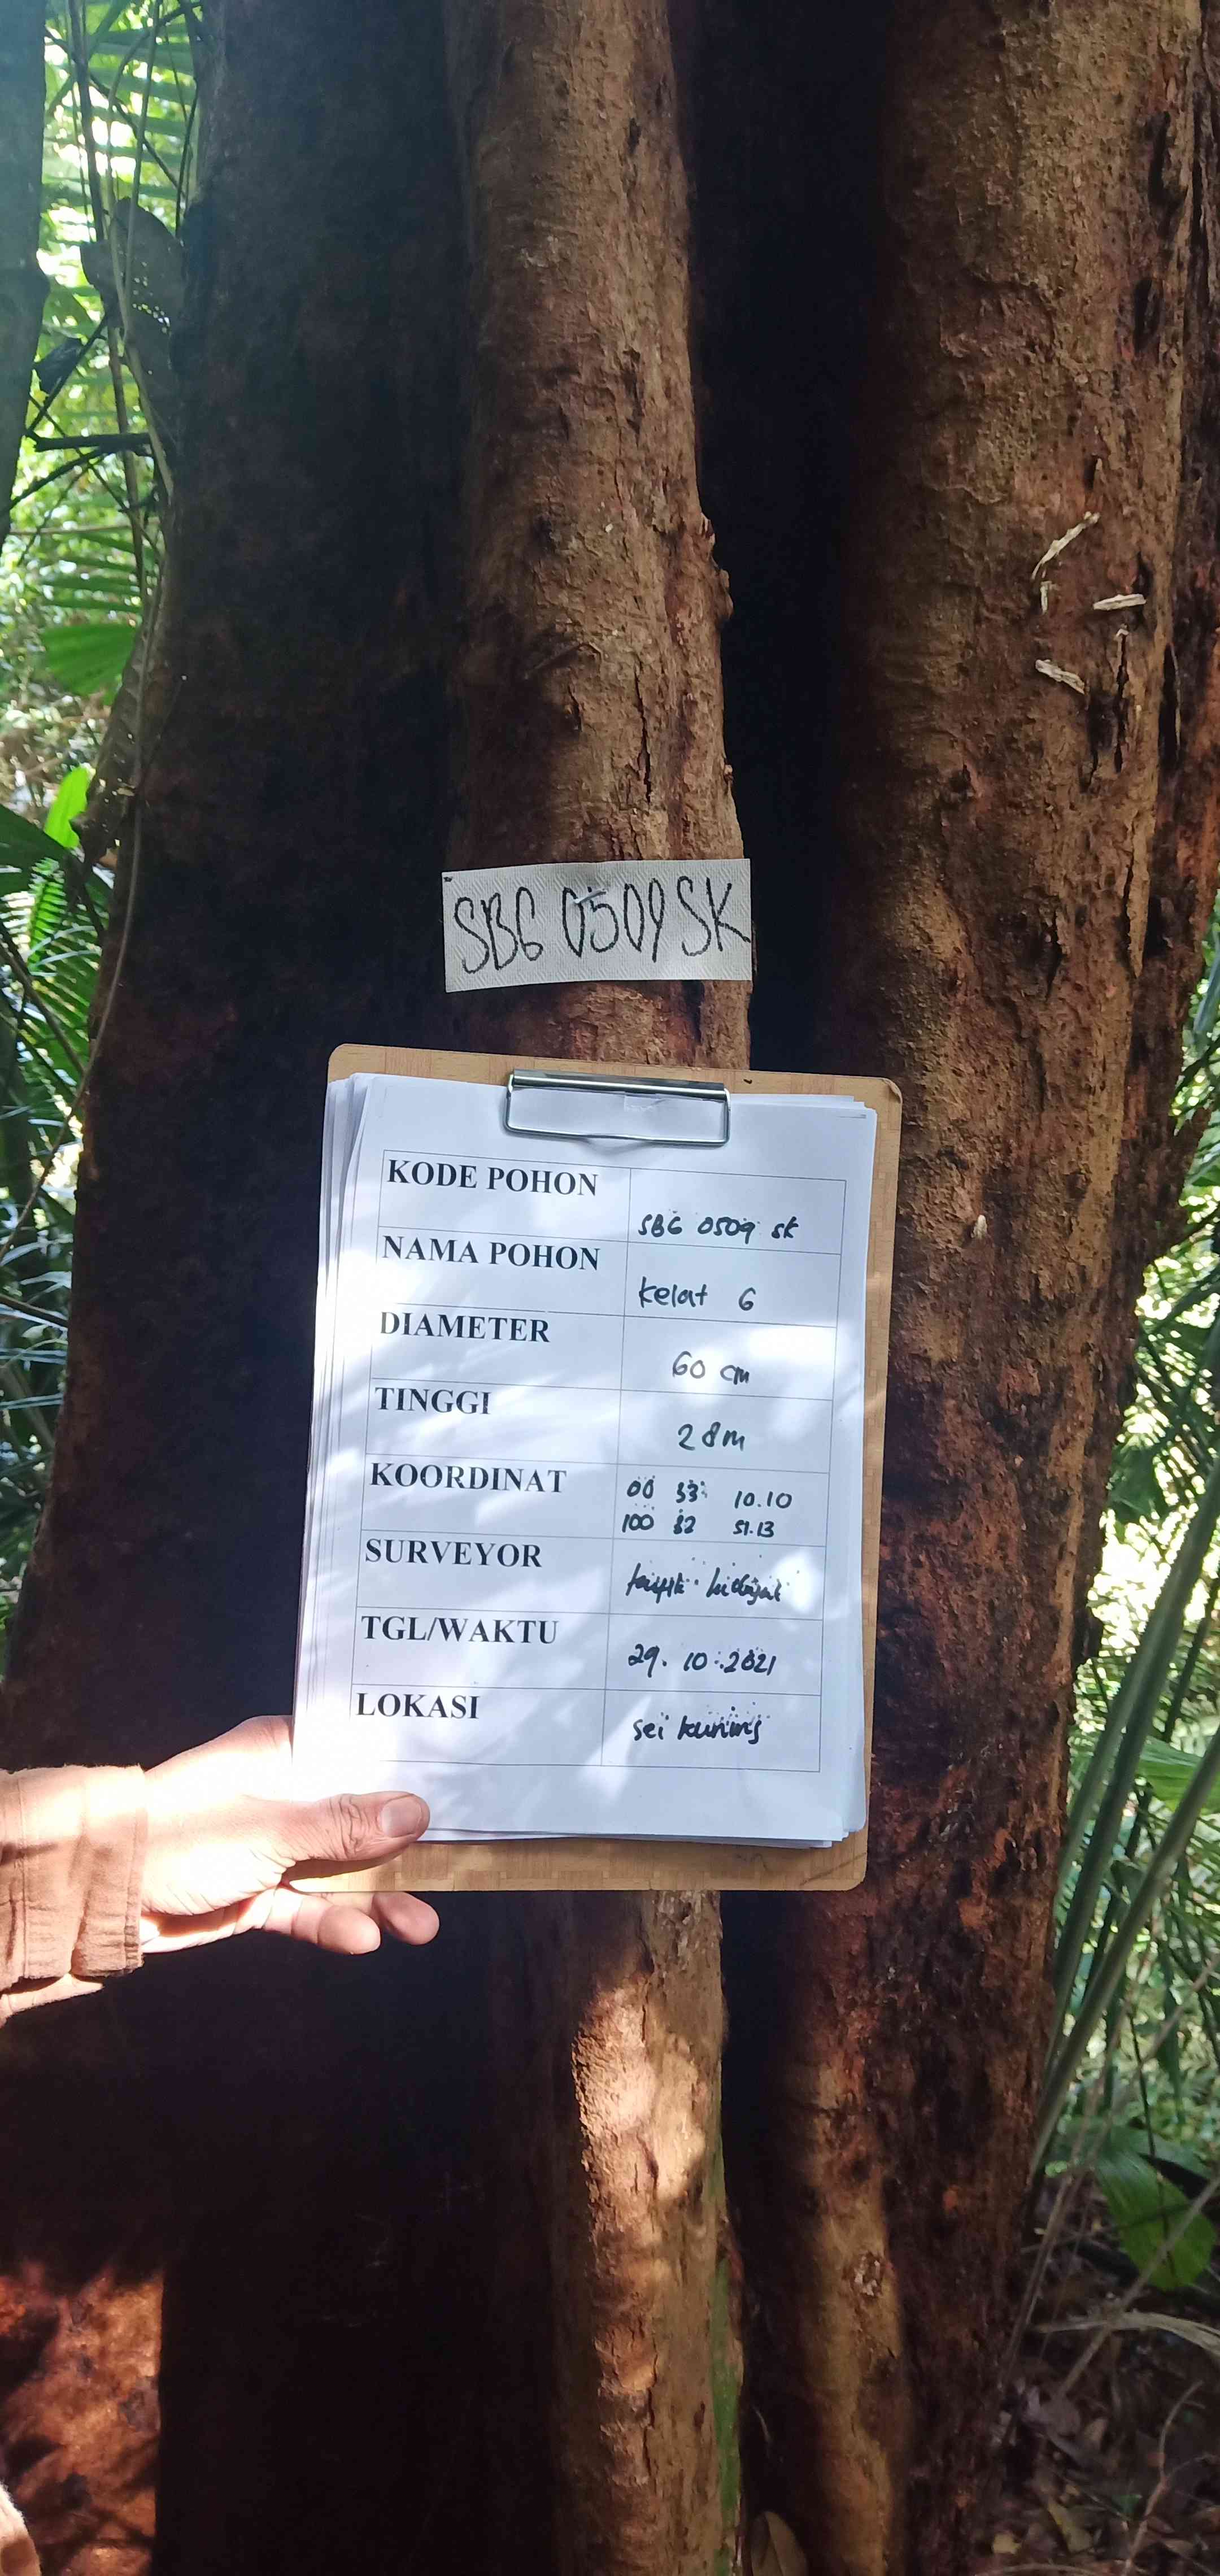 SBG 0509 SK
KODE POHON
SBG 0509 SK
NAMA POHON
kelat 6
DIAMETER
60 cm
TINGGI
28 m
KOORDINAT
00 33 10.10
100 32 51.13
SURVEYOR
taufik hidayat
TGL/WAKTU
29. 10. 2021
LOKASI
sei kuning